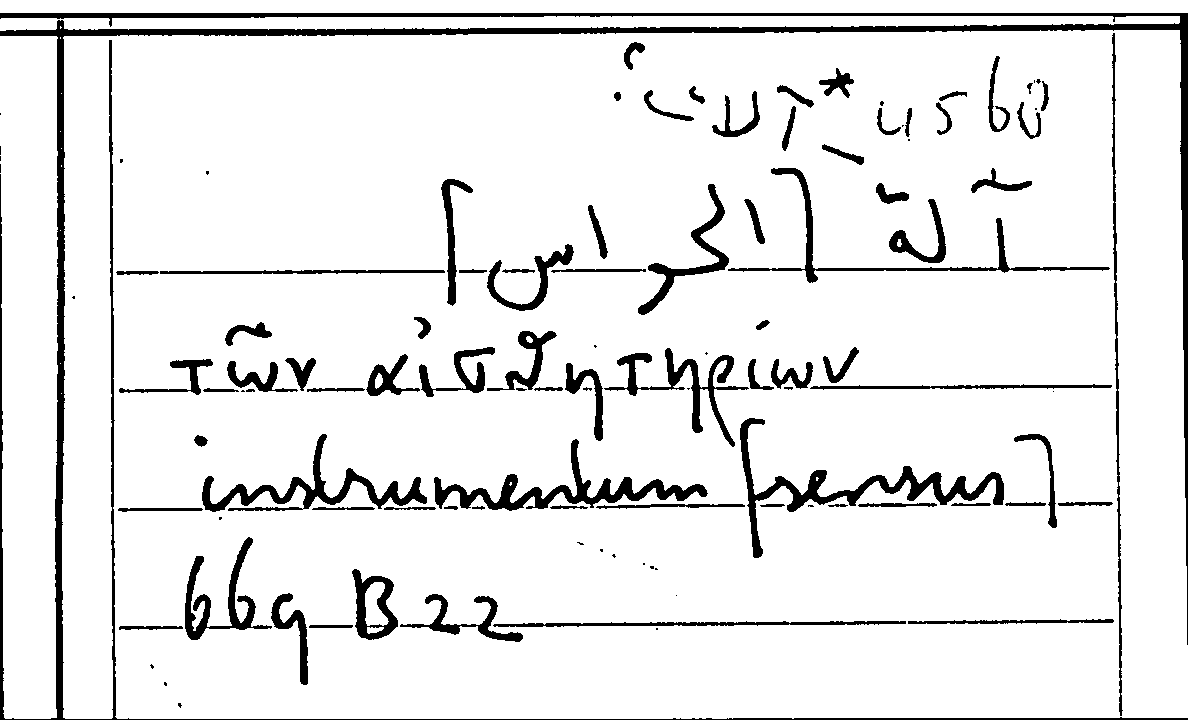 آلة [الحواس]
τῶν αἰσθητηρίων
instrumentum [sensus]
669 B 22